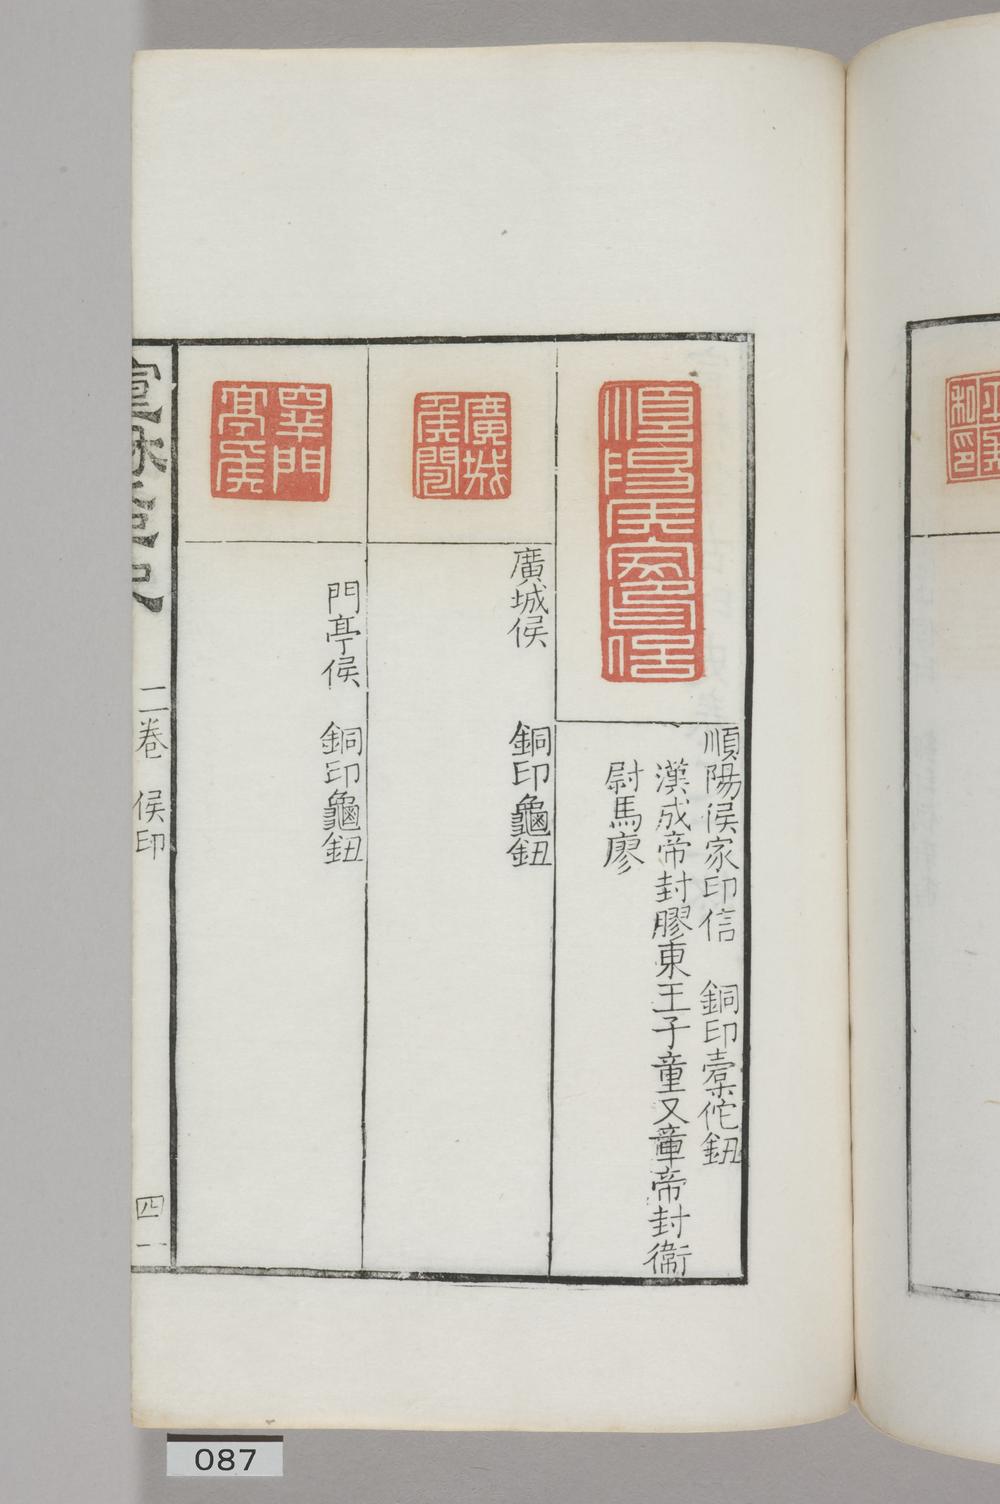 順陽侯家印信
順陽侯家印信　銅印橐佗鈕
漢成帝封膠東王子童又章帝封衞
尉馬廖
廣城
廣城侯　銅印龜鈕
門
亭侯
門亭侯　銅印龜鈕
二卷　侯印
四一
和印
087